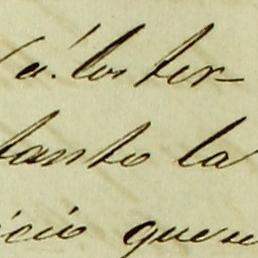 á los ter-
tanto la
icio que